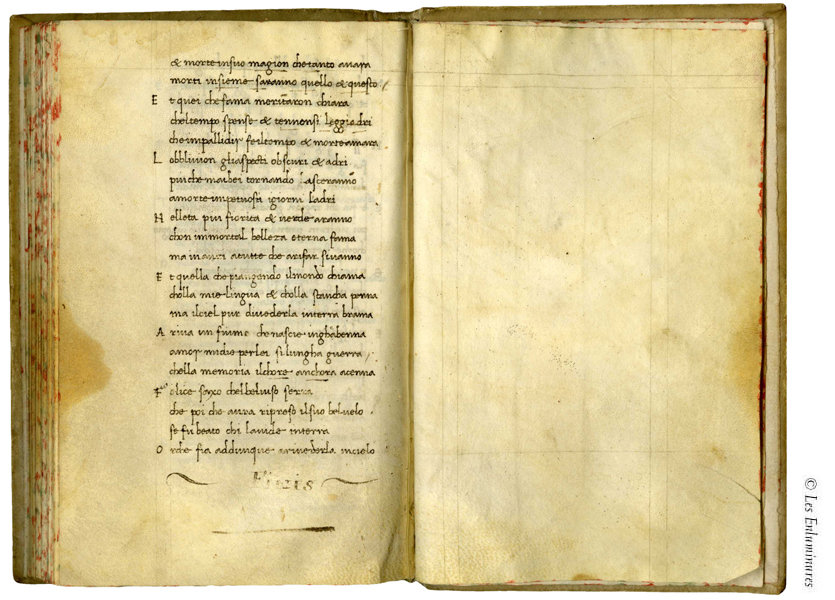 & morte in suo magion che tanto auara
morti insieme saranno quello & questo
E t quei che fama meritaron chiara
chel tempo spense & tennensi leggiadri
che impallidir fe il tempo & morte amara
L obbliuion gli aspecti obscuri & adri
piu che mai bei tornando lasceranno
a morte impetuosa i giorni ladri
N elleta piu fiorita & uerde aranno
chon immortal belleza eterna fama
ma inanzi a tutte che a rifar si uanno
E t quella che piangendo il mondo chiama
cholla mie lingua & cholla stancha penna
ma il ciel pur di uederla interra brama
A riua un fiume che nascie in ghabenna
amor mi die per lei si lungha guerra
chella memoria il chore anchora acenna
F elice saxo chel bel uiso serra
che poi che aura ripreso il suo bel uelo
se fu beato chi la uide interra
O rche fia addunque a riuederla in cielo
Finis
© Les Enluminures